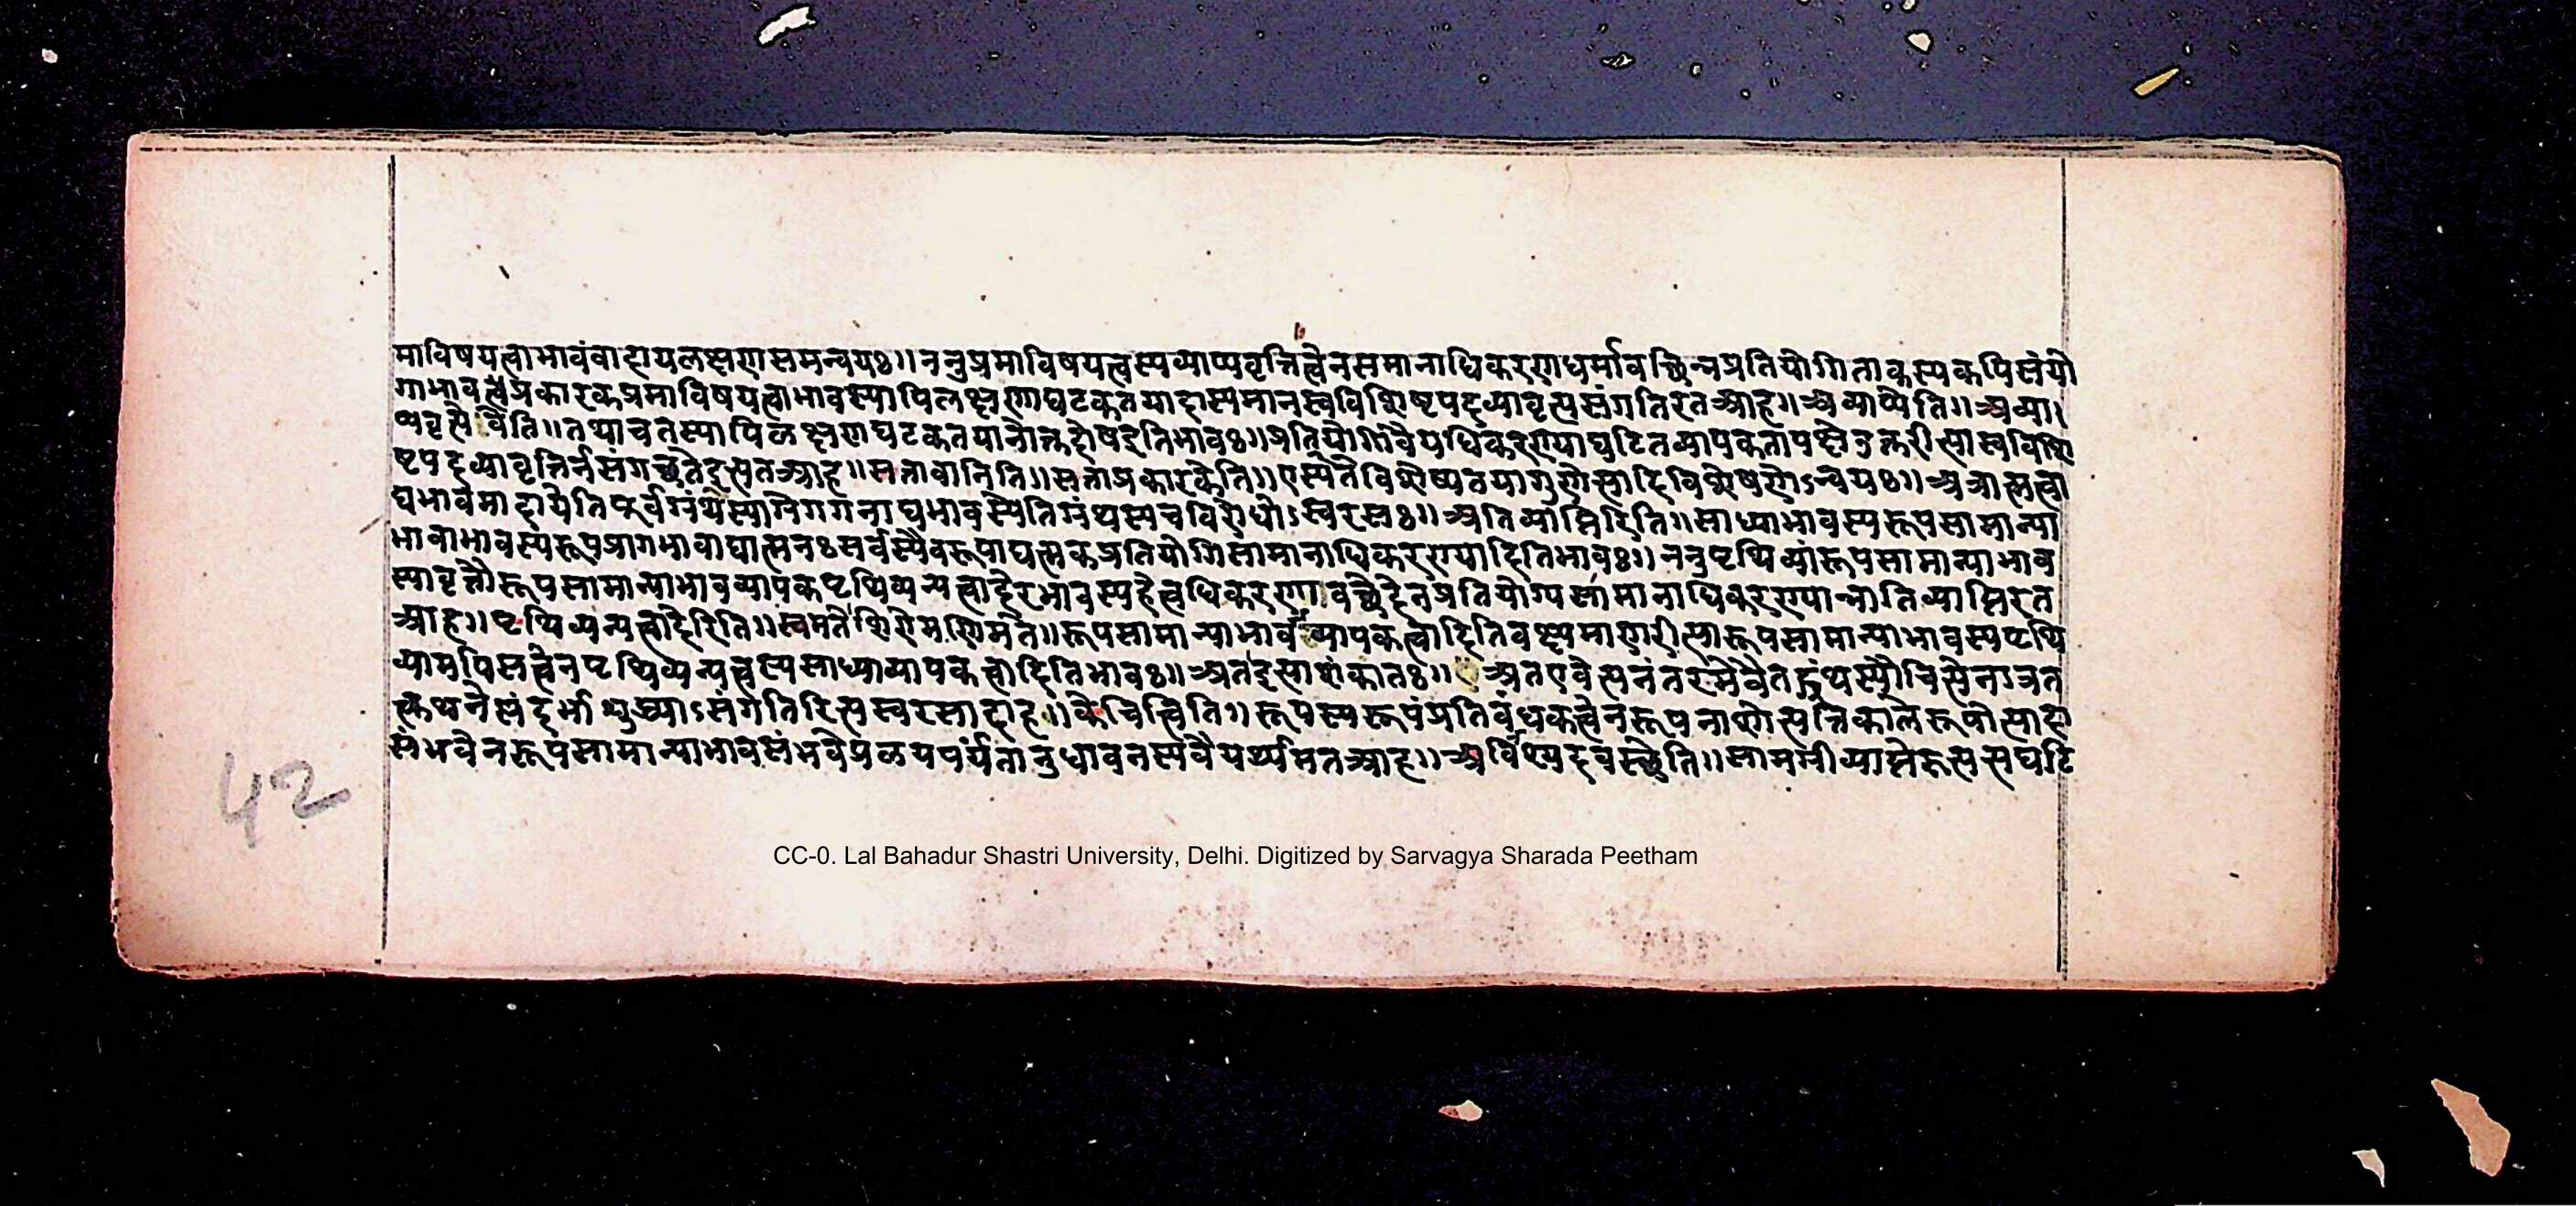 माविषयत्वाभावंवादायलक्षणसमन्वयः॥ननुप्रमाविषयत्वस्यव्याप्यवृत्तित्वेनसमानाधिकरणधर्मावच्छिन्नप्रतियोगिताकस्यकपिसंयो
गाभाववत्त्वप्रकारकप्रमाविषयत्वाभावस्यापिलक्षणघटकतयादास्यमानस्वविशिष्टपदव्यावृत्यसंगतिरतआह॥अव्याप्येति॥अव्या
प्यवृत्तेरेवेति॥तथाचतस्यापिळक्षणघटकतयानोक्तदोषइतिभावः॥प्रतियोगिवैयधिकरण्याघटितव्यापकतापक्षेतुक्तरीत्यास्वविशि
ष्टपदव्यावृत्तिर्नसंगच्छतेइत्यतआह॥सत्तावानिति॥सत्ताप्रकारकेति॥एतस्येतेविशेष्यतयागुणेत्यादिविशेषणेऽन्वयः॥अत्रात्मत्वा
द्यभावमादायेतिपूर्वग्रंथस्याग्रेगगनाद्यभावस्येतिग्रंथस्यचविरोधोऽस्वरसः॥अतिव्याप्तिरिति॥साध्याभावस्यरूपसामान्या
भावाभावस्यरूपप्रागभावाद्यात्मनःसर्वस्यैवरूपाद्यात्मकप्रतियोगिसामानाधिकरण्यादितिभावः॥ननुपृथिव्यांरूपसामान्याभाव
स्यावृत्तौरूपसामान्याभावव्यापकपृथिव्यन्यत्वादेरभावस्यहेत्वधिकरणावच्छेदेनप्रतियोग्यसामानाधिकरण्यान्नातिव्याप्तिरत
आह॥पृथिव्यन्यत्वादेरिति॥स्वमतेशिरोमणिमते॥रूपसामान्याभावव्यापकत्वादितिवक्ष्यमाणरीत्यारूपसामान्याभावस्यपृथि
व्यामपिसत्त्वेनपृथिव्यन्यत्वस्यसाध्याव्यापकत्वादितिभावः॥अतइत्याशंकातः॥अतएवेत्यनंतरमेवैतद्ग्रंथस्यौचित्येनात्रत
त्कथनेसंदर्भाशुद्ध्याऽसंगतिरित्यस्वरसादाह॥केचित्त्विति॥रूपस्यरूपंप्रतिबंधकत्वेनरूपनाशोत्पत्तिकालेरूपोत्पादा
संभवेनरूपसामान्याभावसंभवेप्रळयपर्यंतानुधावनस्यवैयर्थ्यमतआह॥अविश्यदवस्थेति॥सामग्रीव्याप्तेरुत्पत्त्यघटि
42
CC-0. Lal Bahadur Shastri University, Delhi. Digitized by Sarvagya Sharada Peetham